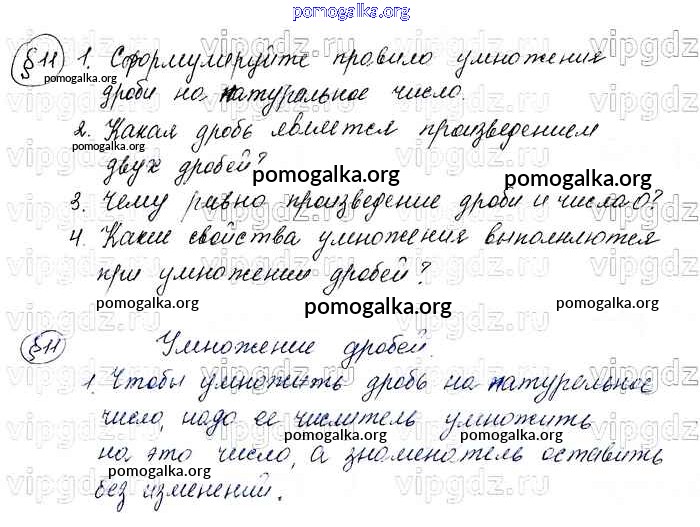 pomogalka.org
§11 1. Сформулируйте правило умножения
pomogalka.org
дроби на натуральное число.
2. Какая дробь является произведением
pomogalka.org
двух дробей?
pomogalka.org pomogalka.org
3. Чему равно произведение дроби и числа 0?
4. Какие свойства умножения выполняются
при умножении дробей?
pomogalka.org pomogalka.org pomogalka.org
§11 Умножение дробей.
1. Чтобы умножить дробь на натуральное
число, надо ее числитель умножить
pomogalka.org pomogalka.org
на это число, а знаменатель оставить
pomogalka.org pomogalka.org
без изменений.